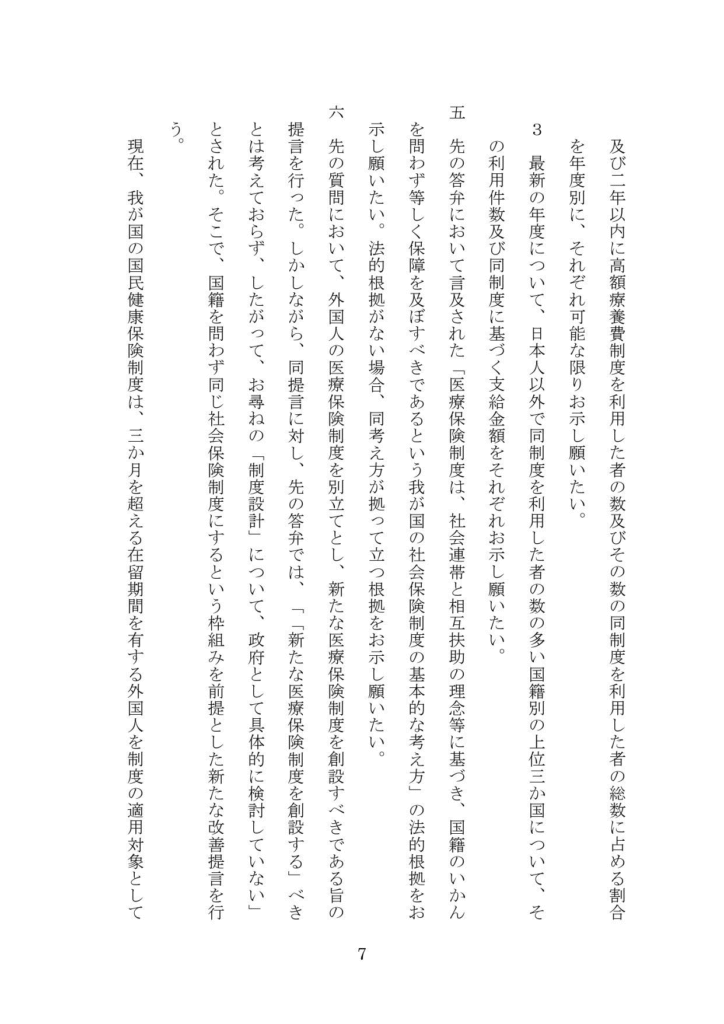 及び二年以内に高額療養費制度を利用した者の数及びその数の同制度を利用した者の総数に占める割合
を年度別に、それぞれ可能な限りお示し願いたい。
３　最新の年度について、日本人以外で同制度を利用した者の数の多い国籍別の上位三か国について、そ
の利用件数及び同制度に基づく支給金額をそれぞれお示し願いたい。
五　先の答弁において言及された「医療保険制度は、社会連帯と相互扶助の理念等に基づき、国籍のいかん
を問わず等しく保障を及ぼすべきであるという我が国の社会保険制度の基本的な考え方」の法的根拠をお
示し願いたい。法的根拠がない場合、同考え方が拠って立つ根拠をお示し願いたい。
六　先の質問において、外国人の医療保険制度を別立てとし、新たな医療保険制度を創設すべきである旨の
提言を行った。しかしながら、同提言に対し、先の答弁では、「「新たな医療保険制度を創設する」べき
とは考えておらず、したがって、お尋ねの「制度設計」について、政府として具体的に検討していない」
とされた。そこで、国籍を問わず同じ社会保険制度にするという枠組みを前提とした新たな改善提言を行
う。
現在、我が国の国民健康保険制度は、三か月を超える在留期間を有する外国人を制度の適用対象として
7